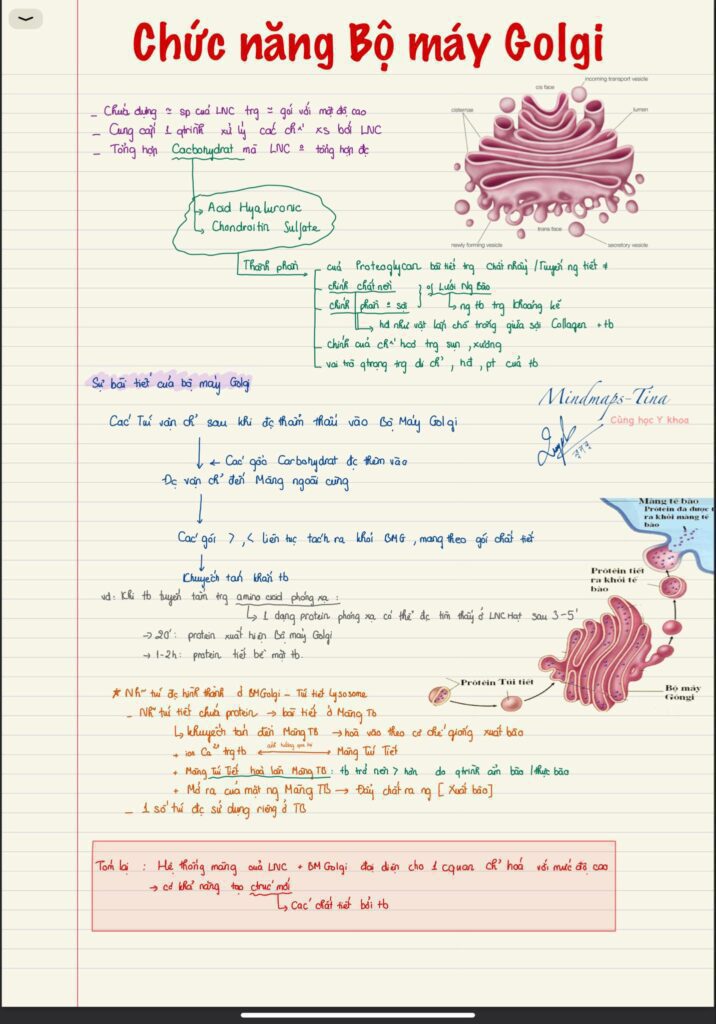 Chức năng Bộ máy Golgi
incoming transport vesicle
cis face
cisternae
lumen
newly forming vesicle
trans face
secretory vesicle
_ Chứa đựng = sp của LNC trg = gói với mật độ cao
_ Cung cấp 1 qtrình xử lý các ch" xs bởi LNC
_ Tổng hợp Cacbohydrat mà LNC = tổng hợp đc
Acid Hyaluronic
Chondroitin Sulfate
Thành phần
của Proteoglycan bài tiết trg Chất nhầy / Tuyến ng tiết ≠
chính chất nền
chính phần = sợi
of Lưới Ng Bào
ng tb trg khoảng kẽ
hđ như vật lấp chỗ trống giữa sợi Collagen + tb
chính của ch" hcơ trg sụn, xương
vai trò qtrọng trg di ch", hđ, pt của tb
Sự bài tiết của bộ máy Golgi
Mindmaps-Tina
Cùng học Y khoa
Các Túi vận ch" sau khi đc thẩm thấu vào Bộ Máy Golgi
← Các gốc Carbohydrat đc thêm vào
Đc vận ch" đến Màng ngoài cùng
Các gói >, < liên tục tách ra khỏi BMG, mang theo gói chất tiết
Khuyếch tán khắp tb
vd: Khi tb tuyến tắm trg amino acid phóng xạ:
1 dạng protein phóng xạ có thể đc tìm thấy ở LNC Hạt sau 3-5'
→ 20': protein xuất hiện Bộ máy Golgi
→ 1-2h: protein tiết bề mặt tb.
Màng tế bào
Prôtêin đã được t
ra khỏi màng tế
bào
Prôtêin tiết
ra khỏi tế
bào
Prôtêin Túi tiết
Bộ máy
Gôngi
★ Nh~ túi đc hình thành ở BMGolgi - Túi tiết Lysosome
_ Nh~ túi tiết chứa protein → bài tiết ở Màng Tb
khuyếch tán đến Màng TB → hoà vào theo cơ chế giống xuất bào
+ ion Ca²⁺ trg tb Màng Túi Tiết
+ Màng Túi Tiết hoà lẫn Màng TB: tb trở nên > hơn do qtrình ẩm bào / thực bào
+ Mở ra của mặt ng Màng TB → Đẩy chất ra ng [Xuất bào]
_ 1 số túi đc sử dụng riêng ở TB
Tóm lại : Hệ thống màng của LNC + BM Golgi đại diện cho 1 cquan ch" hoá với mức độ cao
→ có khả năng tạo ctrúc mới
Các chất tiết bởi tb